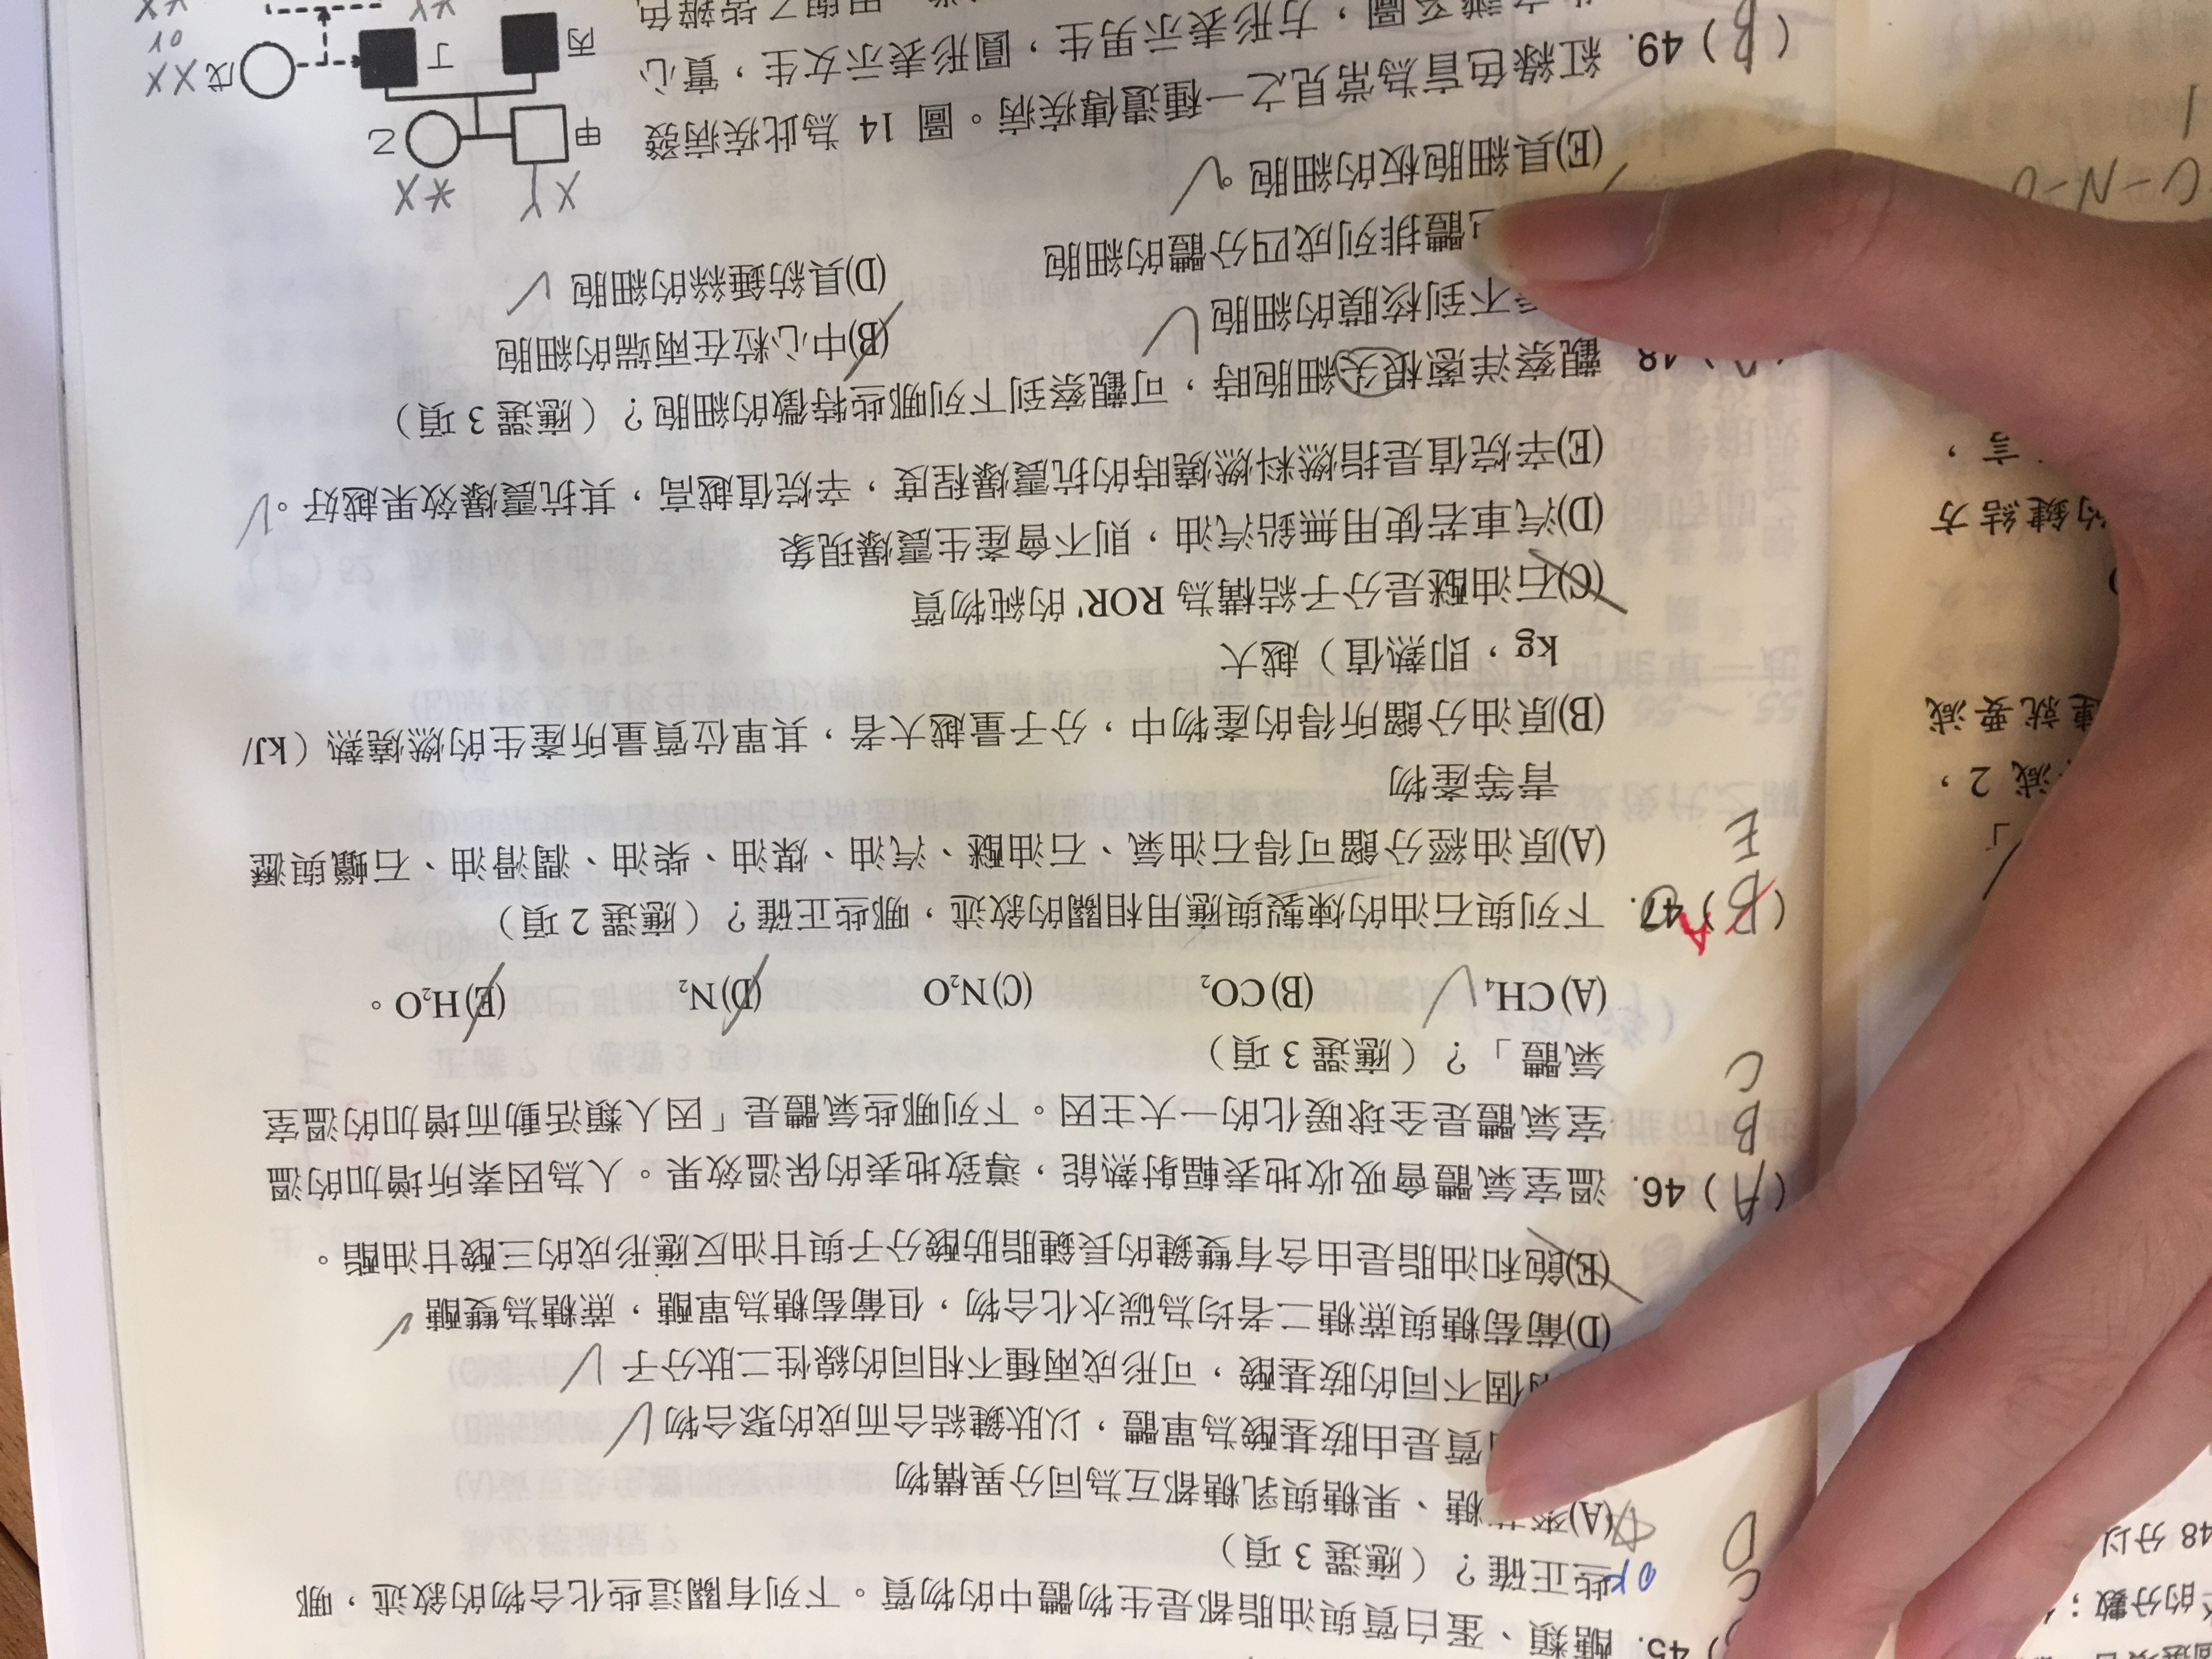 45. 醣類、蛋白質與油脂都是生物體中的物質。下列有關這些化合物的敘述，哪
些正確？（應選 3 項）
ok
C
D
(A) 糖、果糖與乳糖都互為同分異構物
質是由胺基酸為單體，以肽鍵結合而成的聚合物
個不同的胺基酸，可形成兩種不相同的線性二肽分子
(D)葡萄糖與蔗糖二者均為碳水化合物，但葡萄糖為單醣，蔗糖為雙醣
(E)飽和油脂是由含有雙鍵的長鏈脂肪酸分子與甘油反應形成的三酸甘油酯。
(A) 46. 溫室氣體會吸收地表輻射熱能，導致地表的保溫效果。人為因素所增加的溫
B 室氣體是全球暖化的一大主因。下列哪些氣體是「因人類活動而增加的溫室
C 氣體」？（應選 3 項）
(A)CH₄ (B)CO₂ (C)N₂O (D)N₂ (E)H₂O。
(B) A 47. 下列與石油的煉製與應用相關的敘述，哪些正確？（應選 2 項）
E (A)原油經分餾可得石油氣、石油醚、汽油、煤油、柴油、潤滑油、石蠟與瀝
青等產物
(B)原油分餾所得的產物中，分子量越大者，其單位質量所產生的燃燒熱（kJ/
kg，即熱值）越大
(C)石油醚是分子結構為 ROR' 的純物質
(D)汽車若使用無鉛汽油，則不會產生震爆現象
(E)辛烷值是指燃料燃燒時的抗震爆程度，辛烷值越高，其抗震爆效果越好。
48. 觀察洋蔥根尖細胞時，可觀察到下列哪些特徵的細胞？（應選 3 項）
不到核膜的細胞 (B)中心粒在兩端的細胞
體排列成四分體的細胞 (D)具紡錘絲的細胞
(E)具細胞板的細胞。
(B) 49. 紅綠色盲為常見之一種遺傳疾病。圖 14 為此疾病發
圖，方形表示男生，圓形表示女生，實心
XY
X*X
甲
乙
丙
丁
戊
XX
or
C-N-O
言，
的鍵結方
就要減
減 2，
48 分以
的分數；